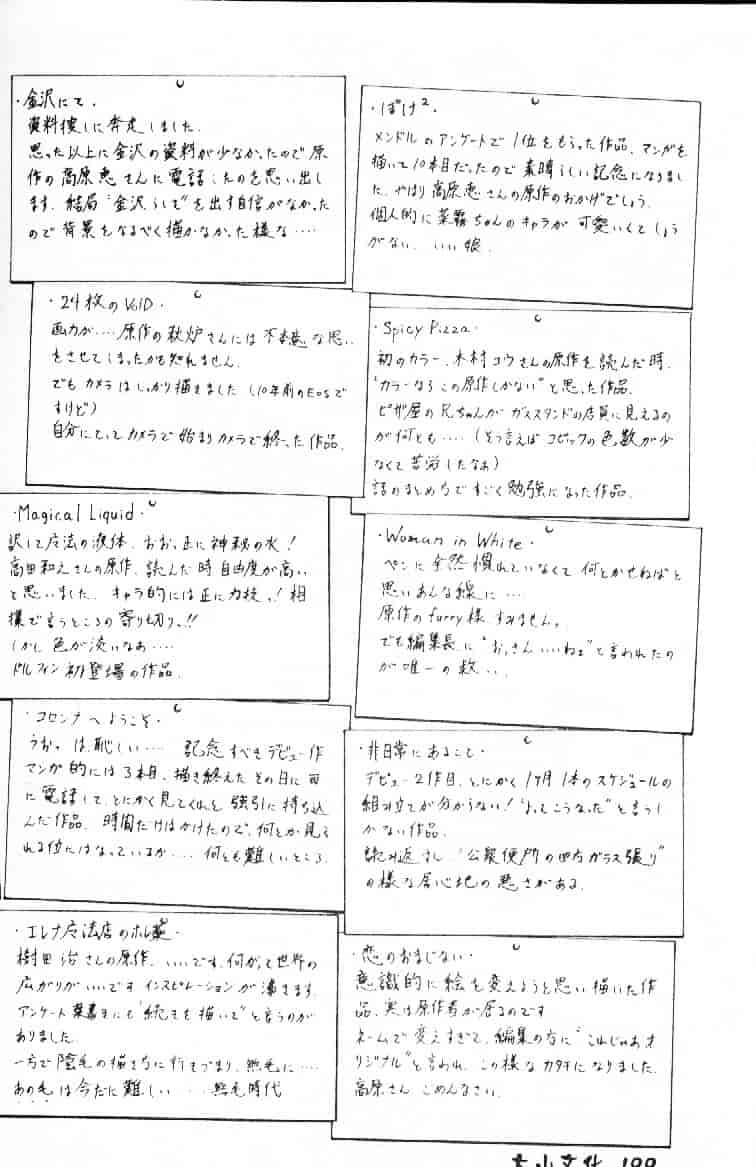 ・金沢にて・
資料捜しに奔走しました。
思った以上に金沢の資料が少なかったので原
作の高原恵さんに電話したのを思い出し
ます。結局"金沢らしさ"を出す自信がなかった
ので背景をなるべく描かなかった様な‥‥
・ばけ²・
メンドルのアンケートで1位をもらった作品、マンガを
描いて10本目だったので素晴らしい記念になりまし
た、やはり高原恵さんの原作のおかげでしょう。
個人的に菜霧ちゃんのキャラが可愛いくてしょう
がない、いい娘。
・24枚のVOID・
画力が‥‥原作の秋炉さんには不本意な思い
をさせてしまったかも知れません。
でもカメラはしっかり描きました(10年前のEOSで
すけど)
自分にとってカメラで始まりカメラで終った作品。
・Spicy Pizza・
初のカラー、木村コウさんの原作を読んだ時、
"カラーならこの原作しかない"と思った作品。
ピザ屋の兄ちゃんがガススタンドの店員に見えるの
が何とも‥‥(そう言えばコピックの色数が少
なくて苦労したなぁ)
話のまとめ方ですごく勉強になった作品。
・Magical Liquid・
訳して魔法の液体、おお、正に神秘の水!
高田和えさんの原作、読んだ時自由度が高い
と思いました、キャラ的には正に力技っ!相
撲で言うところの寄り切りっ!!
しかし色が淡いなあ‥‥
ドルフィン初登場の作品。
・Woman in White・
ペンに全然慣れていなくて何とかせねばと
思いあんな線に‥‥
原作のfurry様、すみません。
でも編集長に"おっさんいいねぇ"と言われたの
が唯一の救‥‥
・コロンナへようこそ・
うおっ は、恥しい‥‥ 記念すべきデビュー作
マンガ的には3本目、描き終えたその日に
に電話して、とにかく見てくれと強引に持ち込
んだ作品、時間だけはかけたので、何とか見ら
れる位にはなっているが‥‥何とも難しいところ。
・非日常にあること・
デビュー2作目、とにかく1ヶ月1本のスケジュールの
組み立てが分からない!"よってこうなった"と言うし
かない作品。
読み返すと、"公衆便所の四方ガラス張り"
の様な居心地の悪さがある。
・エレナ魔法店のホレ薬・
樹田治さんの原作、いいです。何かって世界の
広がりがいいですインスピレーションが湧きます。
アンケート葉書きにも"続きを描いて"と言うのが
ありました。
一方で陰毛の描き方に行きづまり、無毛に‥‥
あの毛は今だに難しい‥‥無毛時代
・恋のおまじない・
意識的に絵を変えようと思い描いた作
品、実は原作者が居るのです
ネームで変えすぎて、編集の方に"これじゃあオ
リジナル"と言われ、この様なカタチになりました。
高原さん ごめんなさい。